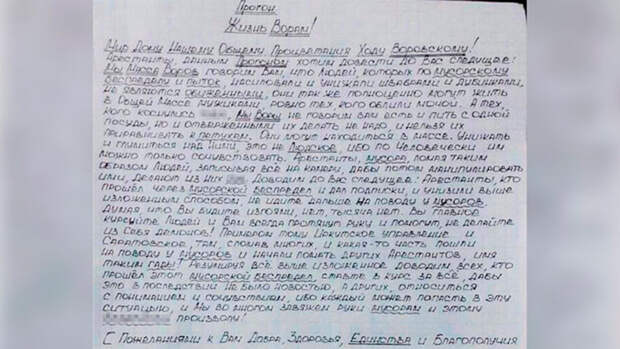 Прогон.
Жизнь Ворам!
Мир Дому Нашему Общему Процветания Ходу Воровскому!
Арестанты, данным Прогоном хотим довести до Вас следущее:
Мы Масса Воров говорим Вам, что людей, которых по мусорскому
беспределу и пыток, насиловали и унижали швабрами и дубинками,
не являются обиженными, они так же полноценно могут жить
в Общей Массе мужиками, ровно тех кого облили мочой. А тех,
кого коснулись Мы Воры не говорим Вам есть и пить с одной
посуды, но и отваженными их делать не надо, и нельзя их
приравнивать к петухам. Они могут находиться в массе. Унижать
и глумиться над Ними, это не Людское, ибо по Человечески им
можно только сочувствовать. Арестанты, мусора, ломая таким
образом Людей, записывая всё на камеру, дабы потом манипулировать
ими, делают из них Доводим до Вас следущее: Арестанты кто
прошёл через мусорской беспредел и дал подписки, и унизили выше
изложенным способом, не идите дальше на поводу у мусоров.
Думая, что Вы будите изгоями, нет, тысяча нет. Вы главное
курсуйте Людей и Вам всегда протянут руку и помогут, не делайте
из Себя демонов! Примером тому Иркутское управление и
Саратовское, там, сломав многих, и какая-то часть пошли
на поводу у мусоров и начали ломать других Арестантов, имя
таким гады! Резюмируя всё выше изложенное доводим всех, кто
прошёл этот мусорской беспредел, ставте в курс за всё, дабы
это в последствии не было новостью, а других, относиться
с пониманием и сочувствием, ибо каждый может попасть в эту
ситуацию, и мы во многом завяжем руки мусорам и этому
произволу!
С Пожеланиями к Вам Добра, Здоровья, Единства и Благополучия